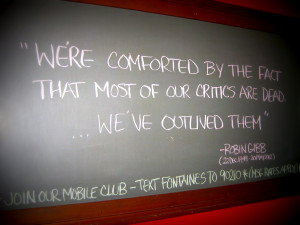 "WE'RE COMFORTED BY THE FACT
THAT MOST OF OUR CRITICS ARE DEAD.
... WE'VE OUTLIVED THEM"
-ROBIN GIBB
JOIN OUR MOBILE CLUB - TEXT FONTAINES TO 90210